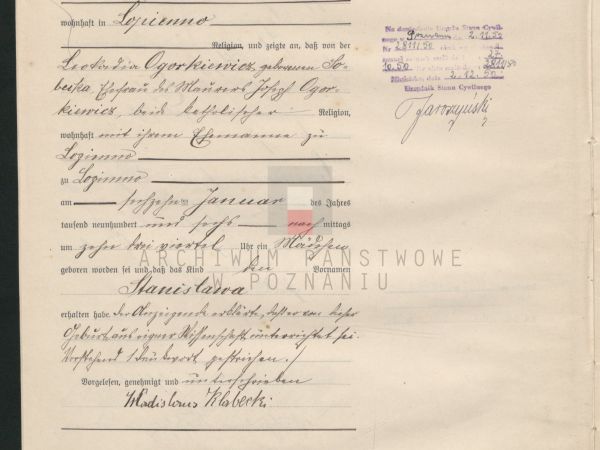 wohnhaft in Lopienno
Religion, und zeigte an, daß von der
Leokadia Ogorkiewicz, geborenen So-
becka, Ehefrau des Maurers Joseph Ogor-
kiewicz, beide katholischer Religion,
wohnhaft mit ihrem Ehemanne zu
Lopienno
zu Lopienno
am sechzehnten Januar des Jahres
tausend neunhundert und sechs nach mittags
um zehn drei viertel Uhr ein Mädchen
geboren worden sei und daß das Kind den Vornamen
Stanislawa
erhalten habe. Der Anzeigende erklärte, daß er von dieser
Geburt aus eigener Wissenschaft unterrichtet sei.
Vorstehend 1 Druckwort gestrichen.
Vorgelesen, genehmigt und unterschrieben
Wladislaus Klabecki
Na doniesienie Urzędu Stanu Cywil-
nego w Poznaniu 2.11.50
Nr 2811/50
10.50
2.12.50
Urzędnik Stanu Cywilnego
Jaroszyński
ARCHIWUM PAŃSTWOWE
W POZNANIU